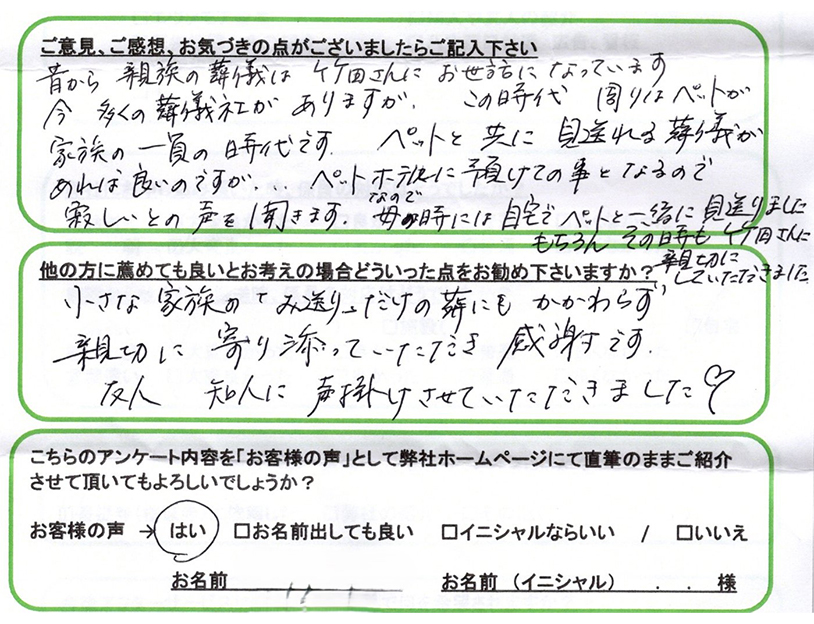 ご意見、ご感想、お気づきの点がございましたらご記入下さい
昔から 親族の葬儀は 竹田さんに お世話になっています
今 多くの葬儀社が ありますが、 この時代 周りはペットが
家族の一員の時代です。 ペットと共に見送れる葬儀が
あれば良いのですが... ペットホテルに預けての事となるので
寂しいとの声を聞きます。なので 母の時には自宅でペットと一緒に見送りました
もちろん その時も 竹田さんに
親切に
していただきました
他の方に薦めても良いとお考えの場合どういった点をお勧め下さいますか?
小さな家族の み送りだけの葬にもかかわらず
親切に 寄り添っていただき 感謝です。
友人 知人に 声掛けさせていただきました♡
こちらのアンケート内容を「お客様の声」として弊社ホームページにて直筆のままご紹介
させて頂いてもよろしいでしょうか?
お客様の声 → はい □お名前出しても良い □イニシャルならいい / □いいえ
お名前 お名前(イニシャル) . . 様